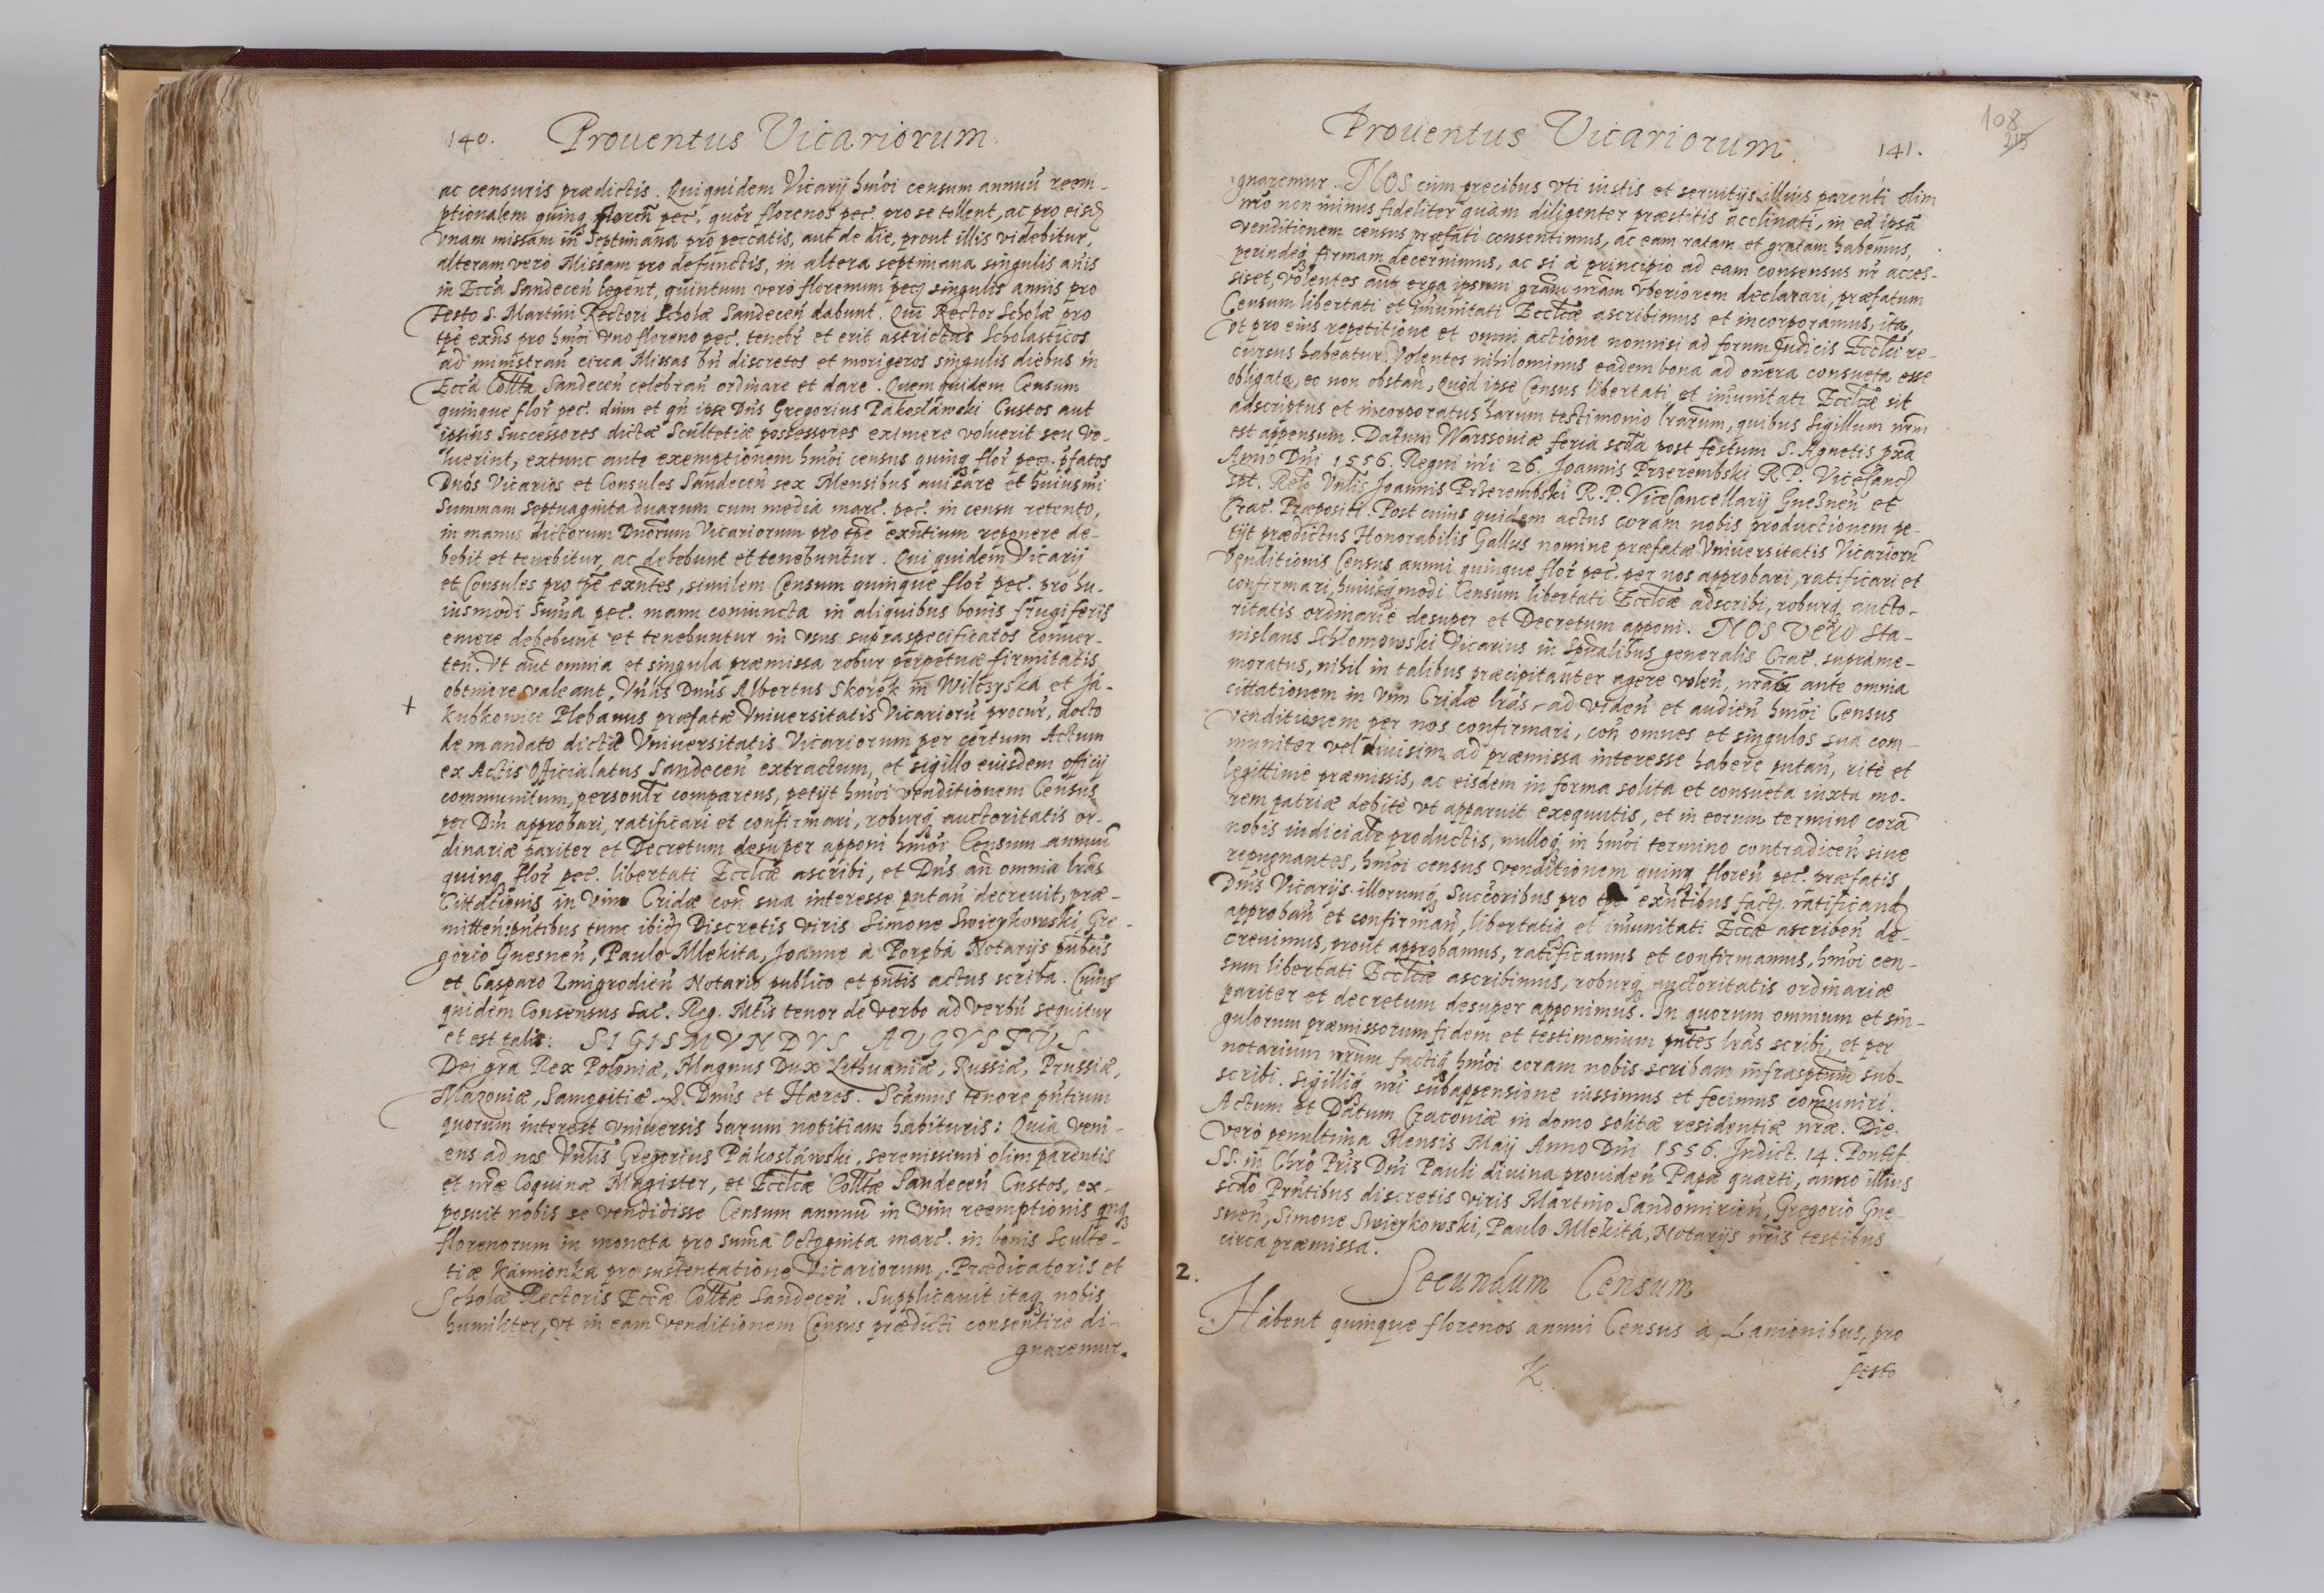 140. Prouentus Vicariorum.
ac censuris prædictis. Quiquidem Vicarij hm̃oi censum annuũ reem-
ptionalem quinq; floreñ pec. quõr florenos pec. pro se tollent, ac pro eisd.
vnam missam in septimana pro peccatis, aut de die, prout illis videbitur,
alteram vero Missam pro defunctis, in altera septimana singulis añis
in Eccã Sandeceñ legent, quintum verò florenum pec. singulis annis pro
Festo S. Martini Rectori Scholæ Sandeceñ dabunt. Qui Rector Scholæ pro
tpẽ exñs pro hm̃oi vno floreno pec. tenebr̃ et erit astrictus Scholasticos
ad ministrañ circa Missas bñ discretos et morigeros singulis diebus in
Eccã Colltã Sandeceñ celebrañ ordinare et dare. Quem quidem Censum
quinque flor̃ pec. dum et qñ ipse Dñs Gregorius Pákosłáwski Custos aut
ipsius Successores dictæ Scultetiæ possessores eximere voluerit seu vo-
luerint, extunc ante exemptionem hm̃oi census quinq; flor̃ pec. pfatos
Dnos Vicarios et Consules Sandeceñ sex Mensibus auisare et huiusmi
Summam Septuaginta duarum cum media marc. pec. in censu retento,
in manus dictorum Dnorum Vicariorum pro tpẽ exñtium reponere de-
bebit et tenebitur, ac debebunt et tenebuntur. Qui quidem Vicarij
et Consules pro tpẽ exñtes, similem Censum quinque flor̃ pec. pro hu-
iusmodi Sum̃a pec. manu coniuncta in aliquibus bonis frugiferis
emere debebunt et tenebuntur in vsus supraspecificatos conuer-
teñ. Vt aũt omnia et singula præmissa robur perpetuæ firmitatis
+ obtinere valeant, Vñlis Dnus Albertus Skorek in Wilczyská et Já-
kubkowice Plebanus præfatæ Vniuersitatis Vicariorũ procur, docto
de mandato dictæ Vniuersitatis Vicariorum per certum Actum
ex Actis Officialatus Sandeceñ extractum, et sigillo eiusdem officij
communitum, personlr̃ comparens, petijt hm̃oi venditionem Census
per Dm̃ approbari, ratificari et confirmari, roburq; auctoritatis or-
dinariæ pariter et Decretum desuper apponi hm̃oi Censum annuũ
quinq; flor̃ pec. libertati Eccliæ ascribi, et Dñs añ omnia lrãs
Cittationis in vim Cridæ coñ sua interesse putañ decreuit, præ-
mitteñ: pñtibus tunc ibid. Discretis viris Simone Swierkowski, Gre-
gorio Gnesneñ, Paulo Mlekita, Joanne à Porębá Notarijs publicis
et Casparo Zmigrodieñ Notario publico et pñtis actus scriba. Cuius
quidem Consensus Sac. Reg. Mtis tenor de verbo ad verbũ sequitur
et est talis: SIGISMVNDVS AUGVSTVS
Dei grã Rex Poloniæ, Magnus Dux Lithuaniæ, Russiæ, Prussiæ,
Mazouiæ, Samogitiæ &. Dnus et Hæres. Scimus tenore pñtium
quorum interest vniuersis harum notitiam habituris: Quia veni-
ens ad nos Vñlis Gregorius Pákosłáwski, serenissimi olim parentis
et nrẽ Coquinæ Magister, et Eccliæ Colltæ Sandeceñ Custos, ex-
posuit nobis se vendidisse Censum annuũ in vim reemptionis qnq;
florenorum in moneta pro sum̃a Octoginta marc. in bonis Sculte-
tiæ Kámionka pro sustentatione Vicariorum, Prædicatoris et
Scholæ Rectoris Eccæ Colltæ Sandeceñ. Supplicauit itaq; nobis
humiliter, vt in eam venditionem Census prædicti consentire di-
gnaremur.
Prouentus Vicariorum. 141.
108
215
gnaremur. NOS cum precibus vti iustis et seruitijs illius parenti olim
nrõ non minus fideliter quàm diligenter præstitis acclinati, in eã ipsã
venditionem census præfati consentimus, ac eam ratam et gratam habemus,
perindeq; firmam decernimus, ac si à principio ad eam consensus nr̃ acces-
siset, volentes aũt erga ipsum grãm nrãm vberiorem declarari, præfatum
Censum libertati et im̃unitati Eccliæ ascribimus et incorporamus, ita,
vt pro eius repetitione et omni actione nonnisi ad forum Judicis Eccľci re-
cursus habeatur. Volentes nihilominus eadem bona ad onera consueta esse
obligata, eo non obstañ, quòd ipse Census libertati et im̃unitati Eccliæ sit
adscriptus et incorporatus harum testimonio lrãrum, quibus Sigillum nrm̃
est appensum. Datum Warssouiæ feria scdã post festum S. Agnetis pxã
Anno Dñi 1556. Regni nri 26. Joannis Przerembski R.P. ViceCanc.
spt. Relẽ Vñlis Joannis Przerembski R.P. ViceCancellarij Gnesneñ et
Crac. Præpositi. Post cuius quidem actus coram nobis productionem pe-
tijt prædictus Honorabilis Gallus nomine præfatæ Vniuersitatis Vicariorũ
Venditionis Census annui quinque flor̃ pec. per nos approbari, ratificari et
confirmari, huiusq; modi Censum libertati Eccliæ adscribi, roburq; aucto-
ritatis ordinariæ desuper et Decretum apponi. NOS vero Sta-
nislaus Schlomowski Vicarius in Spũalibus generalis Crac. supráme-
moratus, nihil in talibus præcipitanter agere voleñ, nrãm ante omnia
cittationem in vim Cridæ lrãs, ad videñ et audieñ hm̃oi Census
venditionem per nos confirmari, coñ omnes et singulos sua com-
muniter vel diuisim ad præmissa interesse habere putañ, ritè et
legittimè præmissis, ac eisdem in forma solita et consueta iuxta mo-
rem patriæ debitè vt apparuit exequutis, et in eorum termino corã
nobis iudicialr̃ productis, nulloq; in hm̃oi termino contradiceñ siue
repugnantes, hm̃oi census venditionem quinq; floreñ pec. præfatis
Dnis Vicarijs illorumq; Succoribus pro tpẽ exñtibus fact. ratificand.
approbañ et confirmañ, libertatiq; et im̃unitati Eccæ ascribeñ de-
creuimus, prout approbamus, ratificamus et confirmamus, hm̃oi cen-
sum libertati Eccliæ ascribimus, roburq; auctoritatis ordinariæ
pariter et decretum desuper apponimus. In quorum omnium et sin-
gulorum præmissorum fidem et testimonium pñtes lrãs scribi, et per
notarium nrũm factiq; hm̃oi coram nobis scribam infrasptum sub-
scribi. Sigilliq; nri subappensione iussimus et fecimus com̃uniri.
Actum et Datum Cracouiæ in domo solitæ residentiæ nræ. Die
verò penultima Mensis Maij Anno Dñi 1556. Indict. 14. Pontif.
SS. in Chrõ Pris Dñi Pauli diuina prouideñ Papæ quarti, anno illius
scdo. Prñtibus discretis viris Martino Sandomirieñ, Gregorio Gne-
sneñ, Simone Swierkowski, Paulo Mlekitá, Notarijs nris testibus
circa præmissa.
2. Secundum Censum
Habent quinque florenos annui Census à Lanionibus, pro
K festo